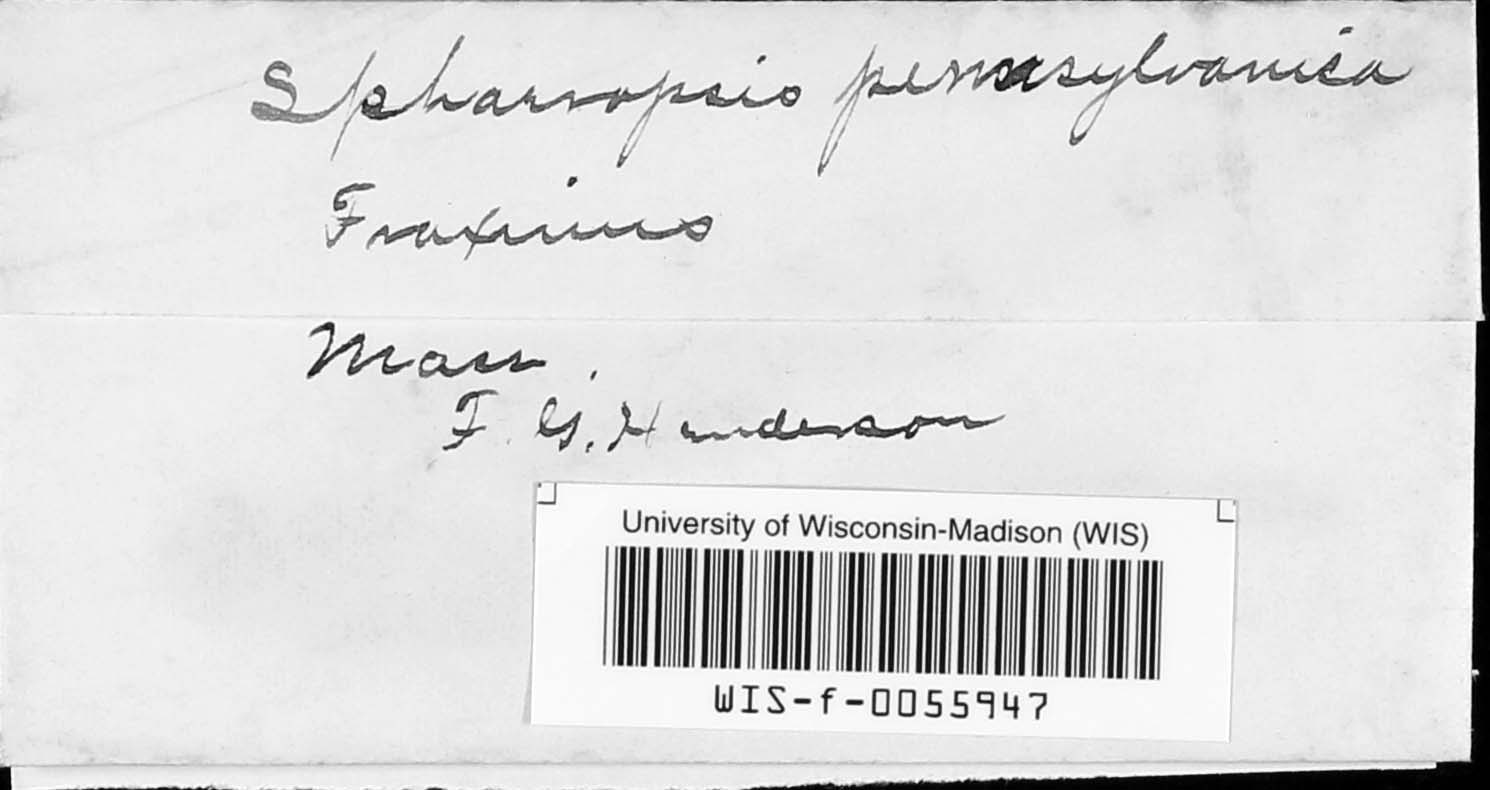 Sphaeropsis pennsylvanica
Fraxinus
Mass.
F. G. Henderson
University of Wisconsin-Madison (WIS)
WIS-f-0055947